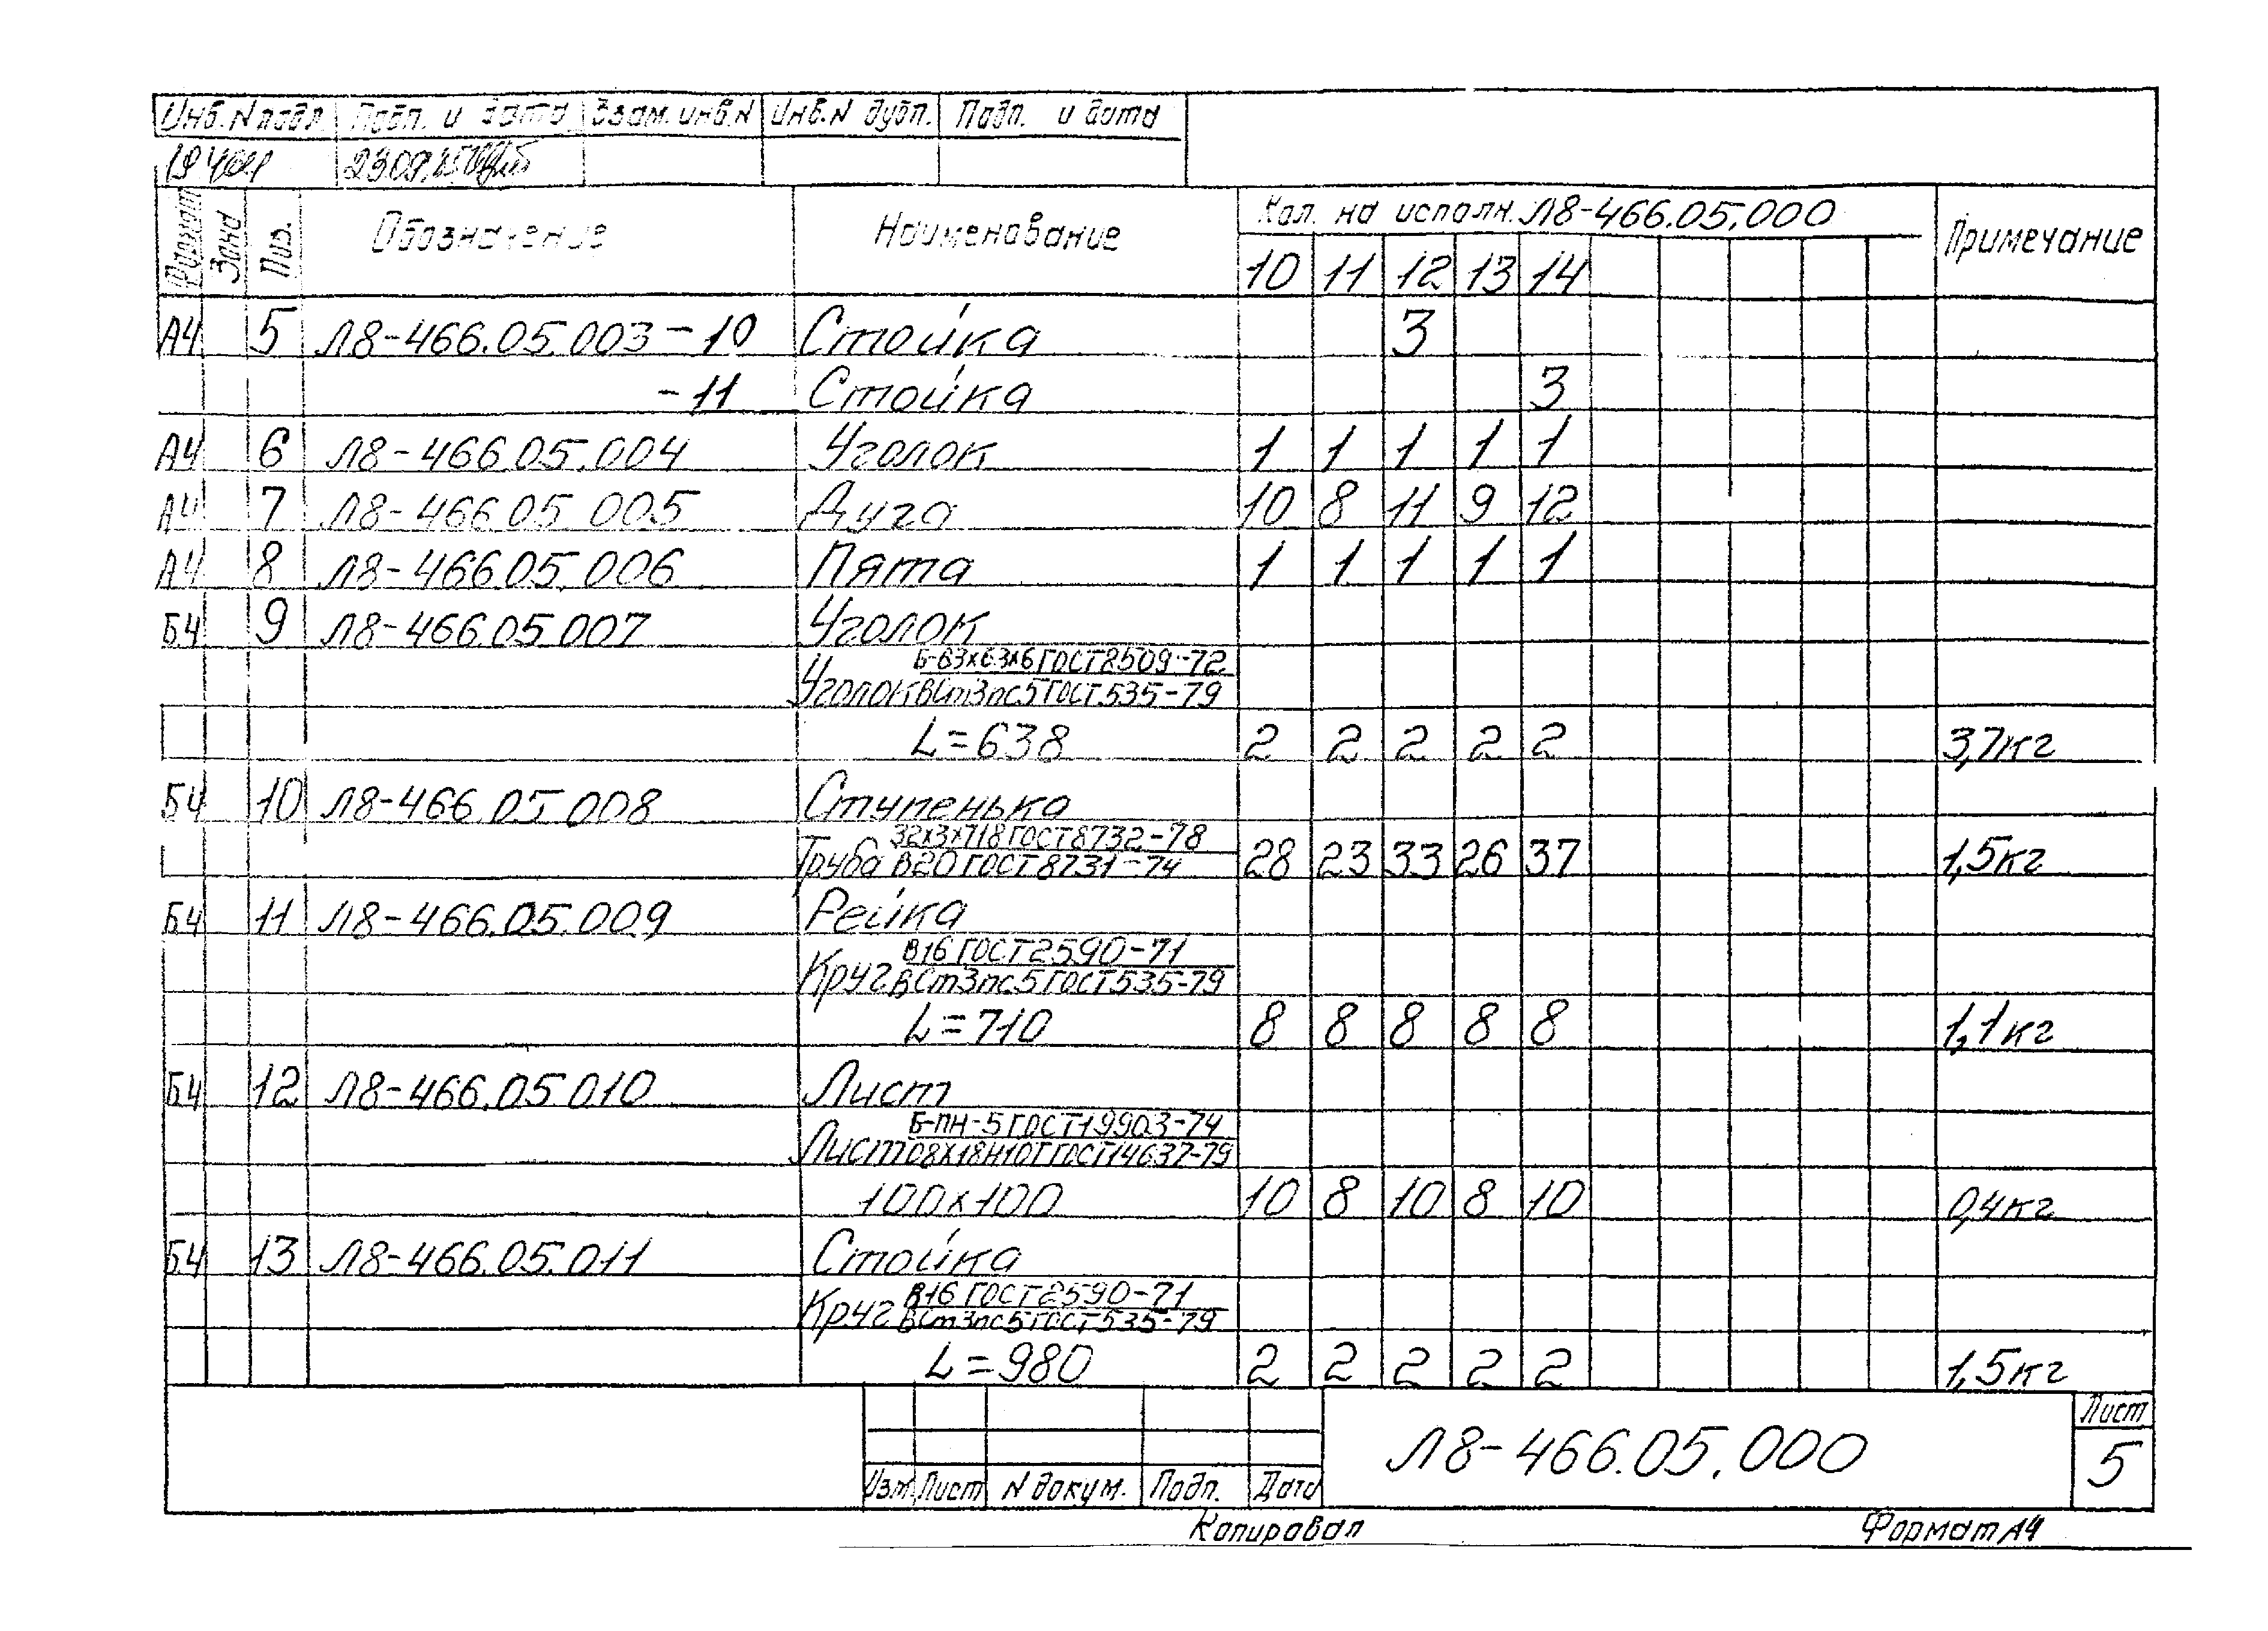 Инв.N подл. Подп. и дата Взам. инв.N Инв.N дубл. Подп. и дата
Формат Зона Поз. Обозначение Наименование Кол. на исполн. Л8-466.05.000 Примечание
10 11 12 13 14
А4 5 Л8-466.05.003-10 Стойка 3
-11 Стойка 3
А4 6 Л8-466.05.004 Уголок 1 1 1 1 1
А4 7 Л8-466.05.005 Дуга 10 8 11 9 12
А4 8 Л8-466.05.006 Пята 1 1 1 1 1
Б4 9 Л8-466.05.007 Уголок
Б-63х63х6 ГОСТ 8509-72
Уголок ВСт3пс5 ГОСТ 535-79
L=638 2 2 2 2 2 3,7кг
Б4 10 Л8-466.05.008 Ступенька
32х3х718 ГОСТ 8732-78
Труба В20 ГОСТ 8731-74 28 23 33 26 37 1,5кг
Б4 11 Л8-466.05.009 Рейка
В16 ГОСТ 2590-71
Круг ВСт3пс5 ГОСТ 535-79
L=710 8 8 8 8 8 1,1кг
Б4 12 Л8-466.05.010 Лист
Б-ПН-5 ГОСТ 19903-74
Лист 08Х18Н10Т ГОСТ 14637-79
100х100 10 8 10 8 10 0,4кг
Б4 13 Л8-466.05.011 Стойка
В16 ГОСТ 2590-71
Круг ВСт3пс5 ГОСТ 535-79
L=980 2 2 2 2 2 1,5кг
Л8-466.05.000
Лист
5
Изм. Лист N докум. Подп. Дата
Копировал Формат А4